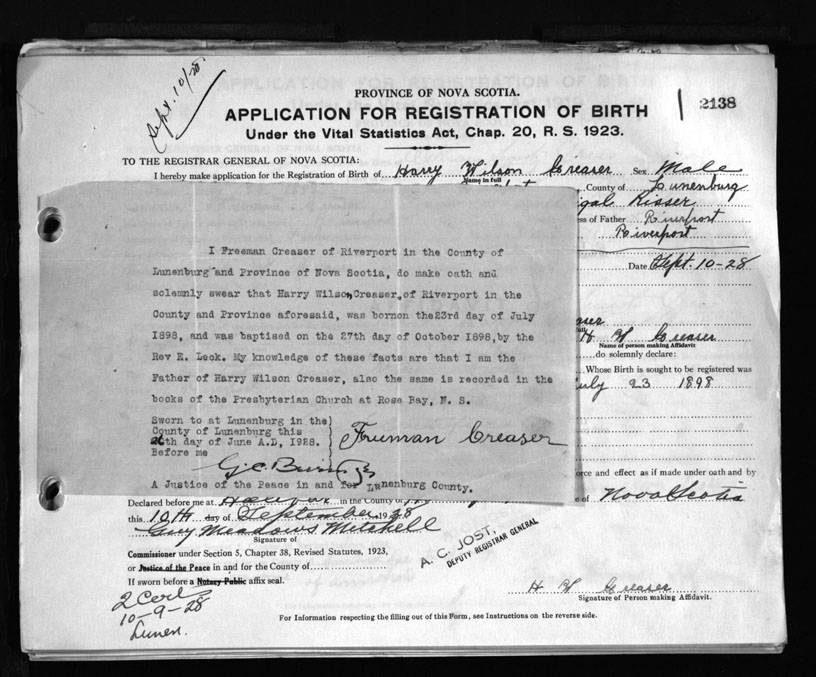 Sept. 10/28
PROVINCE OF NOVA SCOTIA.
APPLICATION FOR REGISTRATION OF BIRTH
2138
Under the Vital Statistics Act, Chap. 20, R. S. 1923.
TO THE REGISTRAR GENERAL OF NOVA SCOTIA:
I hereby make application for the Registration of Birth of Harry Wilson Creaser Sex Male
Name in full
County of Lunenburg
Risser
ss of Father Riverport
Riverport
Date Sept. 10-28
I Freeman Creaser of Riverport in the County of
Lunenburg and Province of Nova Scotia, do make oath and
solemnly swear that Harry Wilson Creaser, of Riverport in the
County and Province aforesaid, was bornon the 23rd day of July
1898, and was baptised on the 27th day of October 1898, by the
Rev E. Leck. My knowledge of these facts are that I am the
Father of Harry Wilson Creaser, also the same is recorded in the
books of the Presbyterian Church at Rose Bay, N. S.
Sworn to at Lunenburg in the)
County of Lunenburg this
th day of June A.D, 1928.
Before me
Freeman Creaser
A Justice of the Peace in and for Lunenburg County.
aser
H W Creaser
Name of person making Affidavit
do solemnly declare:
Whose Birth is sought to be registered was
uly 23 1898
orce and effect as if made under oath and by
e of Nova Scotia
Declared before me at Halifax in the County of
this 10th day of September 1928
Guy Meadows Mitchell
Signature of
Commissioner under Section 5, Chapter 38, Revised Statutes, 1923,
or Justice of the Peace in and for the County of
If sworn before a Notary Public affix seal.
A. C. JOST,
DEPUTY REGISTRAR GENERAL
H W Creaser
Signature of Person making Affidavit.
2 Cert
10-9-28
Lunen.
For Information respecting the filling out of this Form, see Instructions on the reverse side.